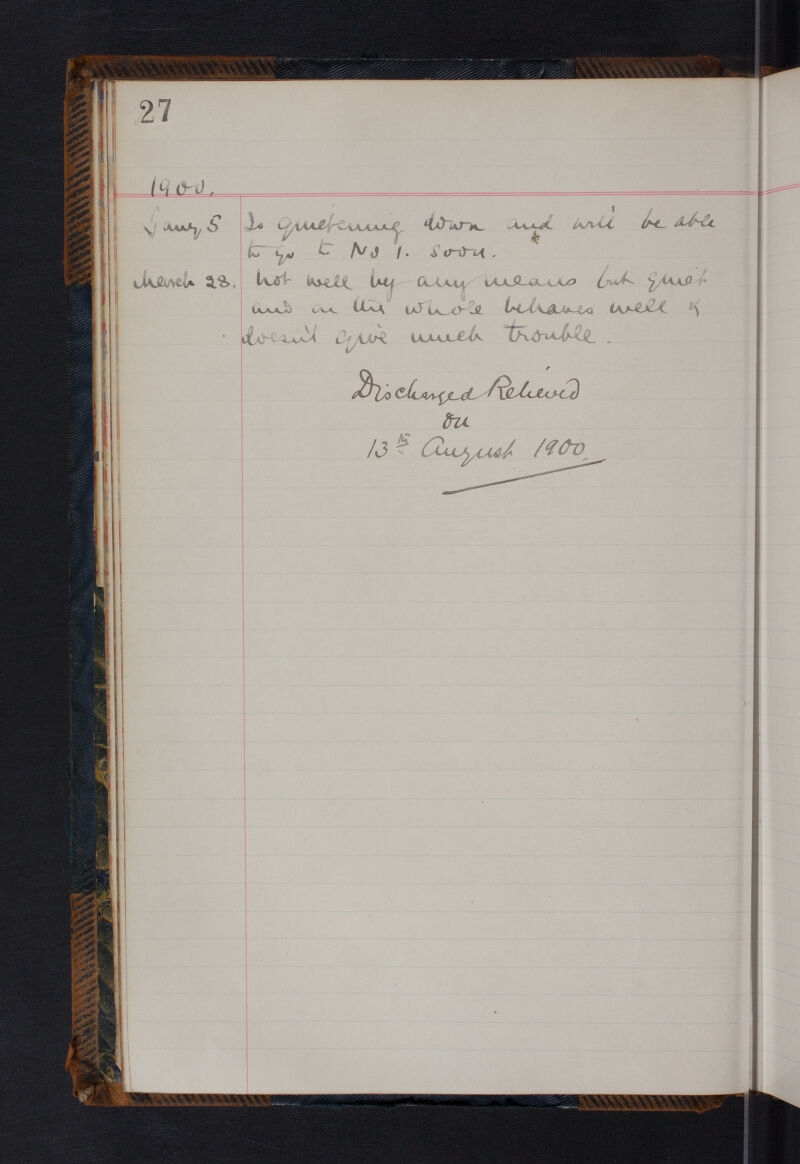 27
1900.
Jany 5 Is quietening down and will be able
to go to No 1. soon.
March 28. Not well by any means but quiet
and on the whole behaves well &
doesn't give much trouble.
Discharged Relieved
on
13th August 1900.